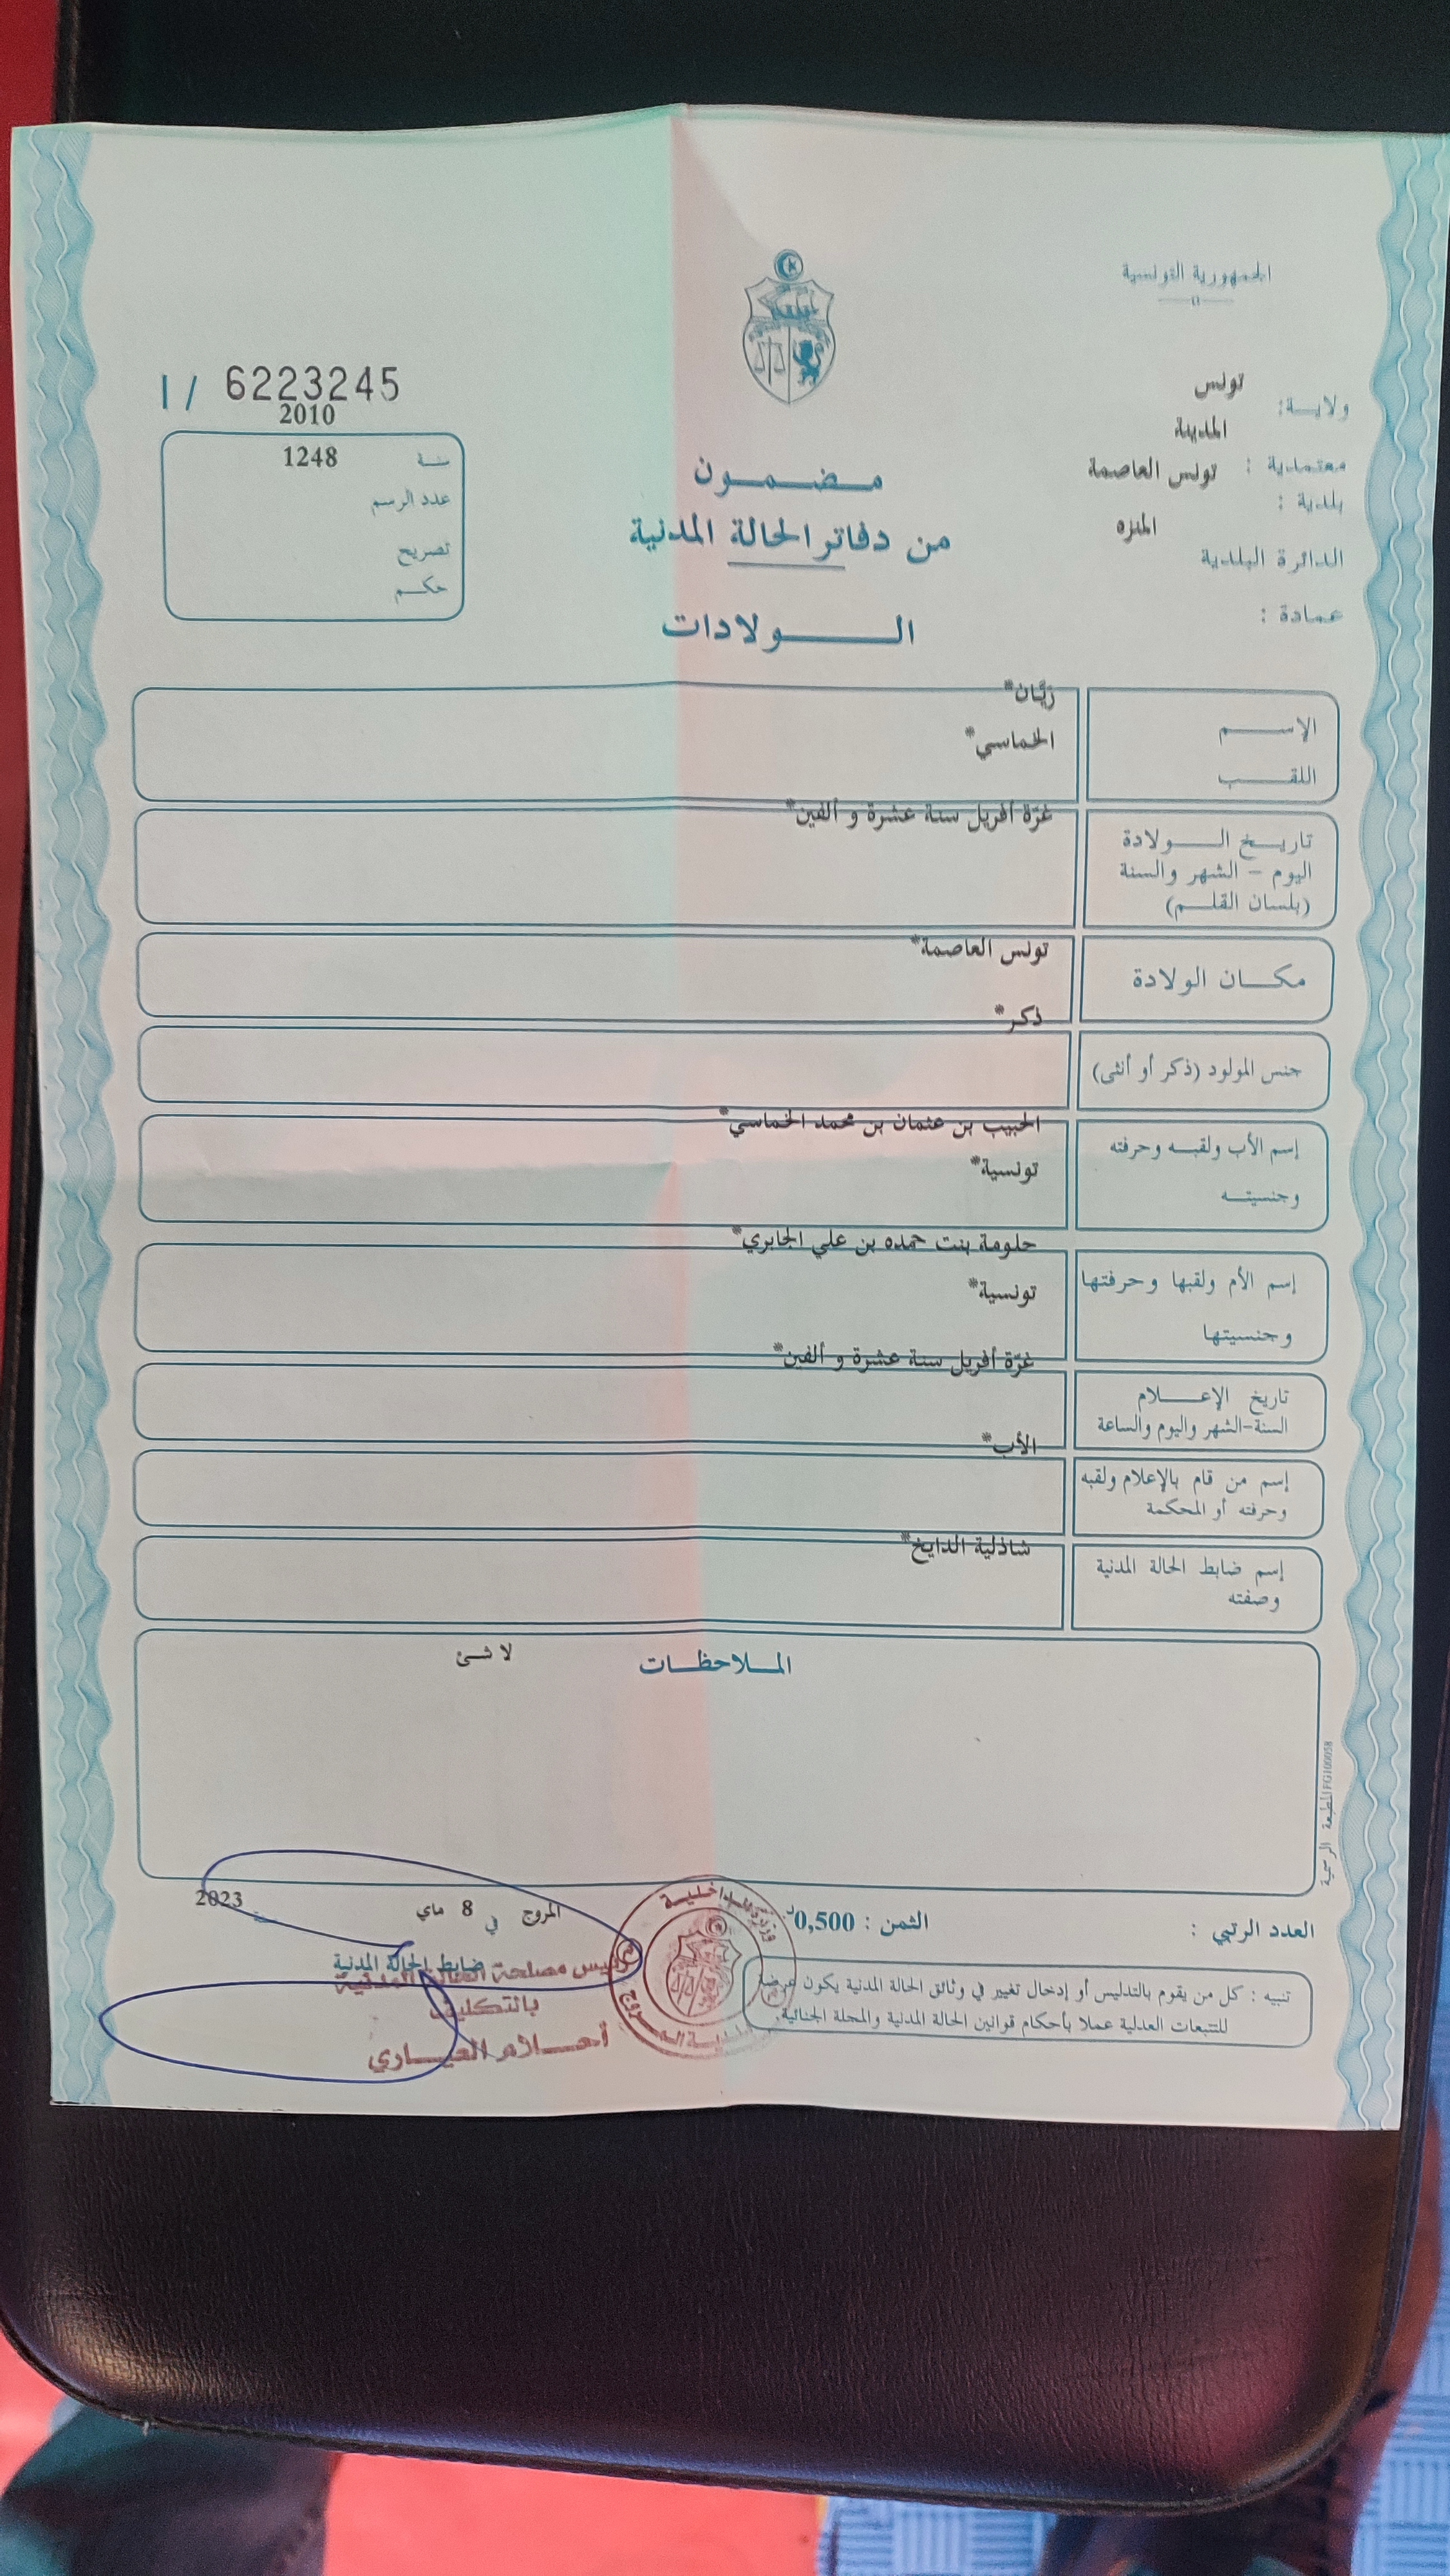 الجمهورية التونسية
ولاية: تونس
المدينة
معتمدية :
تونس العاصمة
بلدية :
المنزه
الدائرة البلدية
عمادة :
مضمون
من دفاتر الحالة المدنية
الولادات
I / 6223245
2010
سنة 1248
عدد الرسم
تصريح
حكم
الإسم ريّان*
اللقب الخماسي*
تاريخ الولادة غرّة أفريل سنة عشرة و ألفين*
اليوم - الشهر والسنة
(بلسان القلم)
مكان الولادة تونس العاصمة*
جنس المولود (ذكر أو أنثى) ذكر*
إسم الأب ولقبه وحرفته الحبيب بن عثمان بن محمد الخماسي*
وجنسيته تونسية*
إسم الأم ولقبها وحرفتها حلومة بنت حمده بن علي الجابري*
وجنسيتها تونسية*
تاريخ الإعلام غرّة أفريل سنة عشرة و ألفين*
السنة-الشهر واليوم والساعة
إسم من قام بالإعلام ولقبه الأب*
وحرفته أو المحكمة
إسم ضابط الحالة المدنية شاذلية الدايخ*
وصفته
الملاحظات لا شئ
المطبعة الرسمية FG100058
العدد الرتبي :
الثمن : 0,500د
المروج في 8 ماي 2023
ضابط الحالة المدنية
رئيس مصلحة الحالة المدنية
بالتكليف
أحلام العياري
وزارة الداخلية
بلدية المروج
تنبيه : كل من يقوم بالتدليس أو إدخال تغيير في وثائق الحالة المدنية يكون عرضة
للتتبعات العدلية عملا بأحكام قوانين الحالة المدنية والمجلة الجنائية.